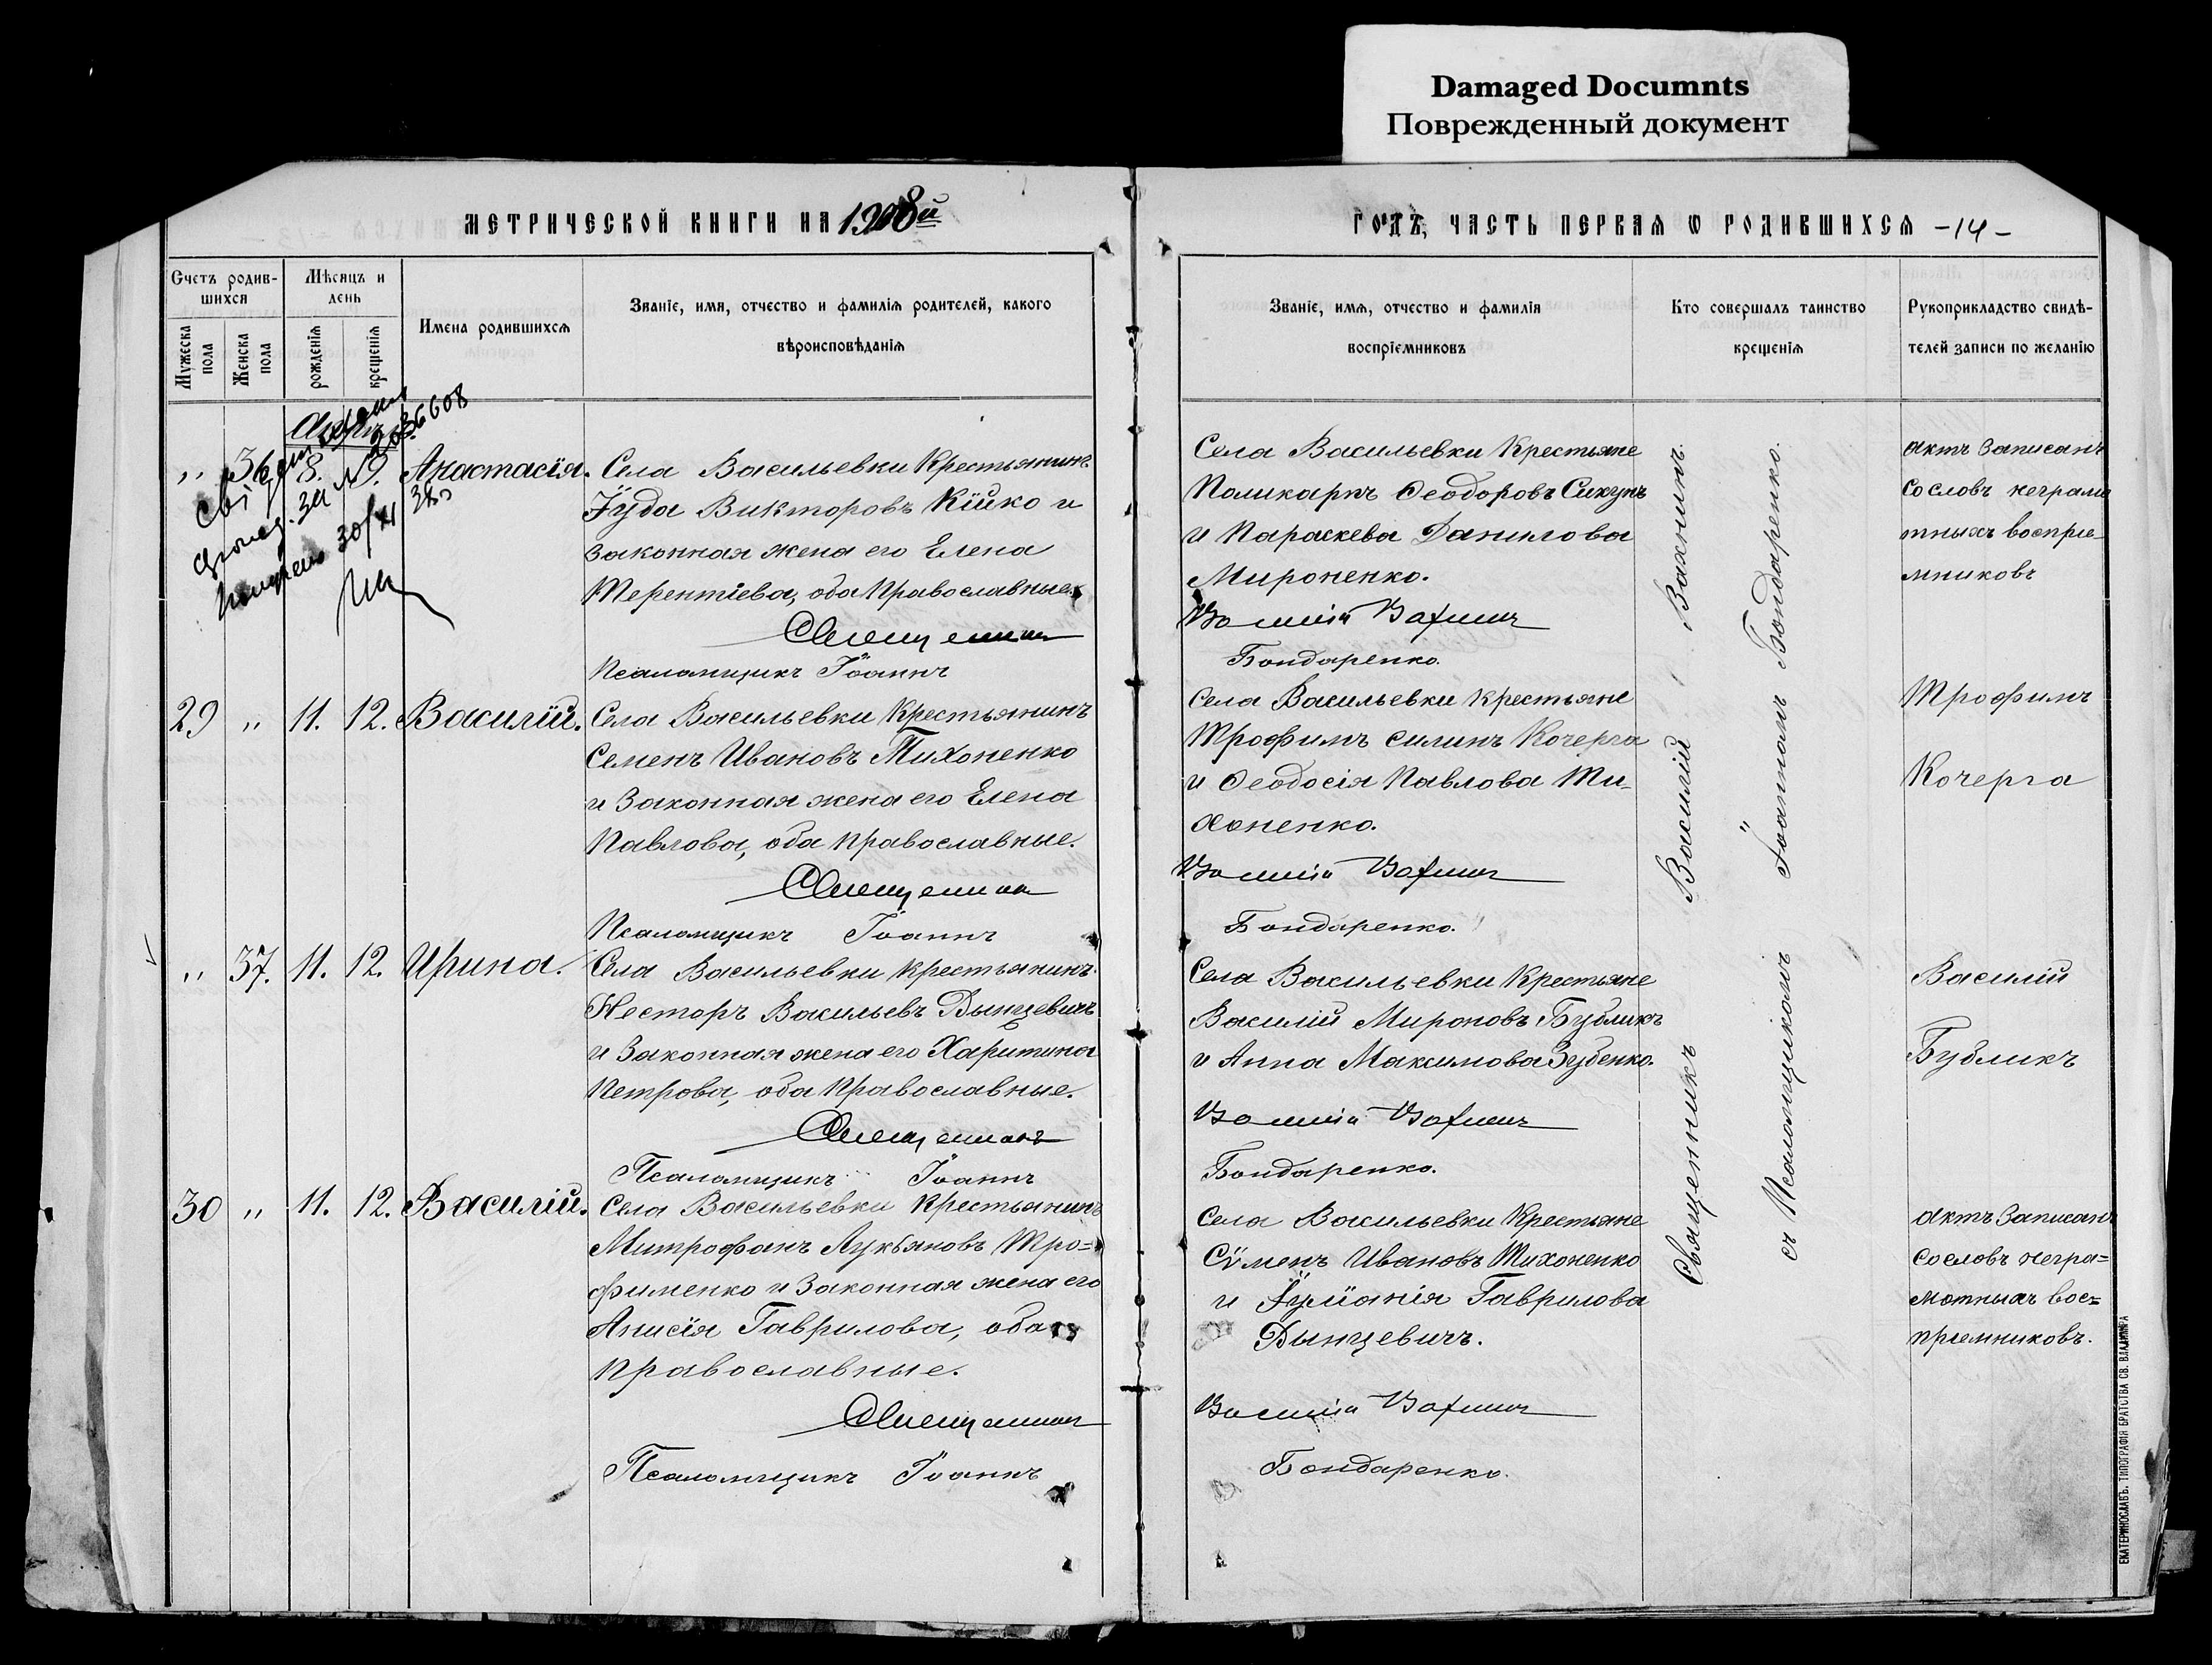 Damaged Documnts
Поврежденный документ
МЕТРИЧЕСКОЙ КНИГИ НА 1908й
ГОДЪ, ЧАСТЬ ПЕРВАЯ Ѡ РОДИВШИХСЯ -14-
Счетъ родив-
шихся
Мѣсяцъ и
день
Мужеска
пола
Женска
пола
рожденія
крещенія
Имена родившихся
Званіе, имя, отчество и фамилія родителей, какого
вѣроисповѣданія
Званіе, имя, отчество и фамилія
воспріемниковъ
Кто совершалъ таинство
крещенія
Рукоприкладство свидѣ-
телей записи по желанію
,, 36 8. 9. Анастасія.
за №
30/XI 38
Села Васильевки Крестьянинъ
Іуда Викторовъ Кійко и
законная жена его Елена
Терентіева, оба Православные.
Священникъ
Псаломщикъ Іоаннъ
Села Васильевки Крестьяне
Поликарпъ Ѳеодоровъ Сикунъ
и Параскева Данилова
Мироненко.
Василій Вахнинъ
Бондаренко.
актъ записанъ
со словъ неграмо
тныхъ воспріе-
мниковъ
29 ,, 11. 12. Василій.
Села Васильевки Крестьянинъ
Семенъ Ивановъ Тихоненко
и законная жена его Елена
Павлова, оба православные.
Священникъ
Псаломщикъ Іоаннъ
Села Васильевки крестьяне
Трофимъ Силинъ Кочерга
и Ѳеодосія Павлова Ти-
хоненко.
Василій Вахнинъ
Бондаренко.
Трофимъ
Кочерга
,, 37. 11. 12. Ирина.
Села Васильевки крестьянинъ
Несторъ Васильевъ Дынцевичъ
и законная жена его Харитина
Петрова, оба Православные.
Священникъ
Псаломщикъ Іоаннъ
Села Васильевки Крестьяне
Василій Мироновъ Бубликъ
и Анна Максимова Зубенко.
Василій Вахнинъ
Бондаренко.
Василій
Бубликъ
30 ,, 11. 12. Василій.
Села Васильевки Крестьянинъ
Митрофанъ Лукьяновъ Тро=
фименко и законная жена его
Анисія Гаврилова, оба
православные.
Священникъ
Псаломщикъ Іоаннъ
Села Васильевки Крестьяне
Сѵменъ Ивановъ Тихоненко
и Іуліанія Гаврилова
Дынцевичъ.
Василій Вахнинъ
Бондаренко.
актъ записанъ
со словъ негра=
мотныхъ вос=
пріемниковъ.
Священникъ Василій Вахнинъ
съ Псаломщикомъ Іоанномъ Бондаренко.
ЕКАТЕРИНОСЛАВЪ. ТИПОГРАФІЯ БРАТСТВА СВ. ВЛАДИМІРА